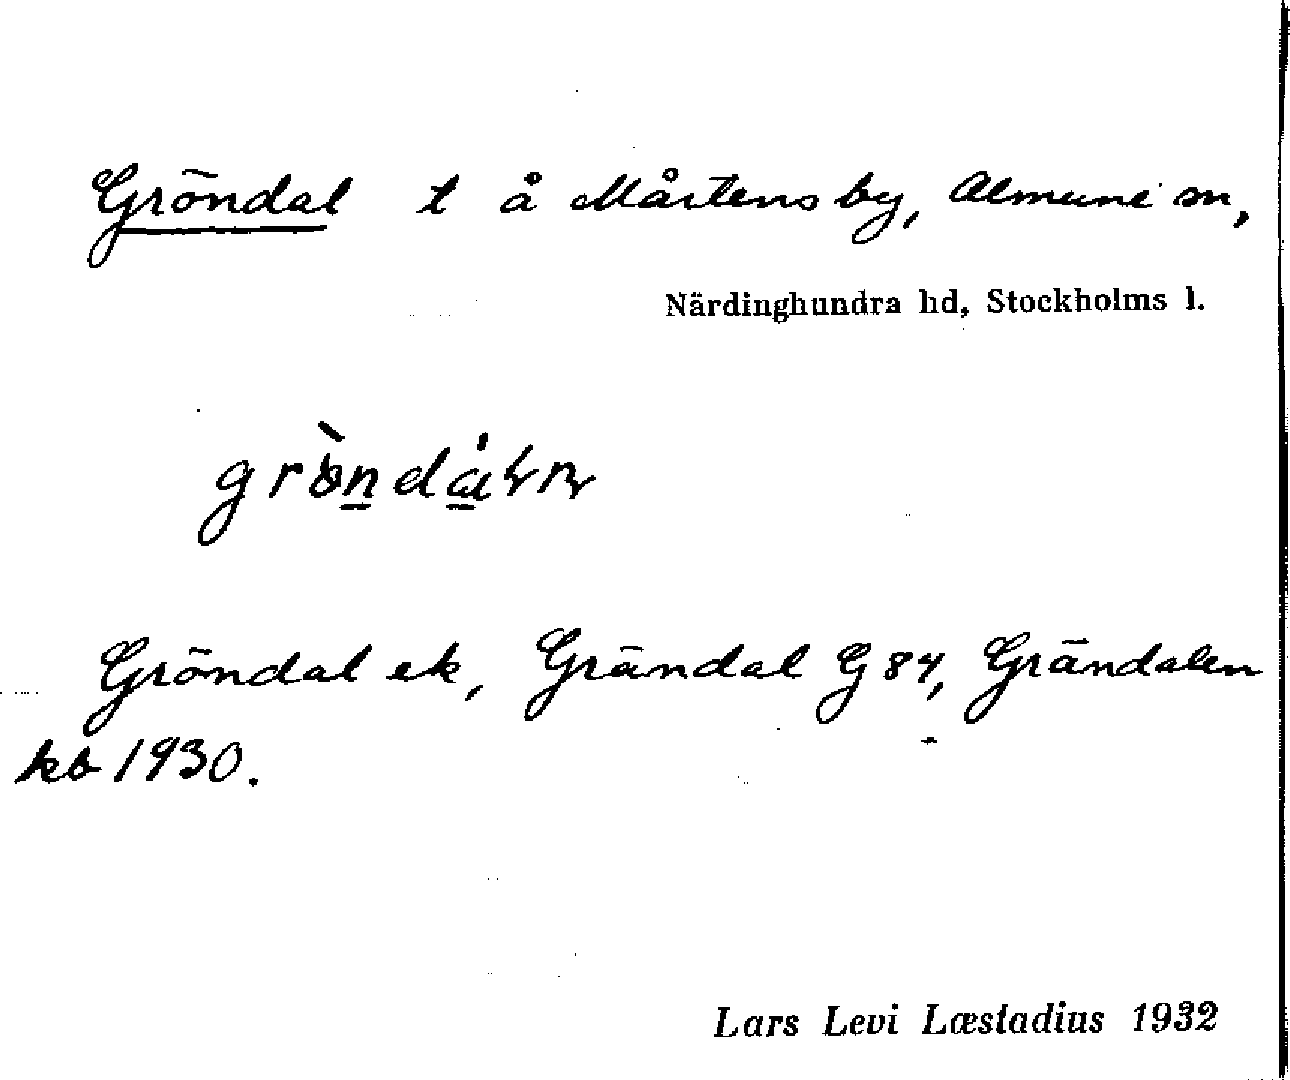 Gröndal t å Mårtensby, Almunge sn,
Närdinghundra hd, Stockholms l.
Gröndal ek, Grändal G 84, Grändalen
kb 1930.
Lars Levi Læstadius 1932